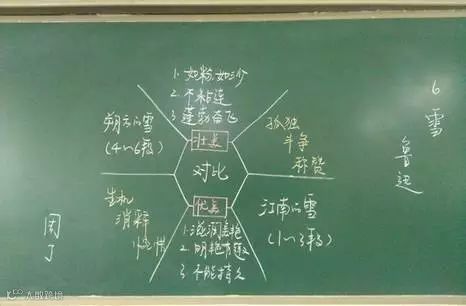 6
雪
鲁迅
1. 如粉,如沙
2. 不粘连
3. 蓬勃奋飞
朔方的雪
(4~6段)
壮美
孤独
斗争
称赞
对比
生机
消释
优美
1. 滋润美艳
2. 明艳有趣
3. 不能持久
江南的雪
(1~3段)
大数跨境